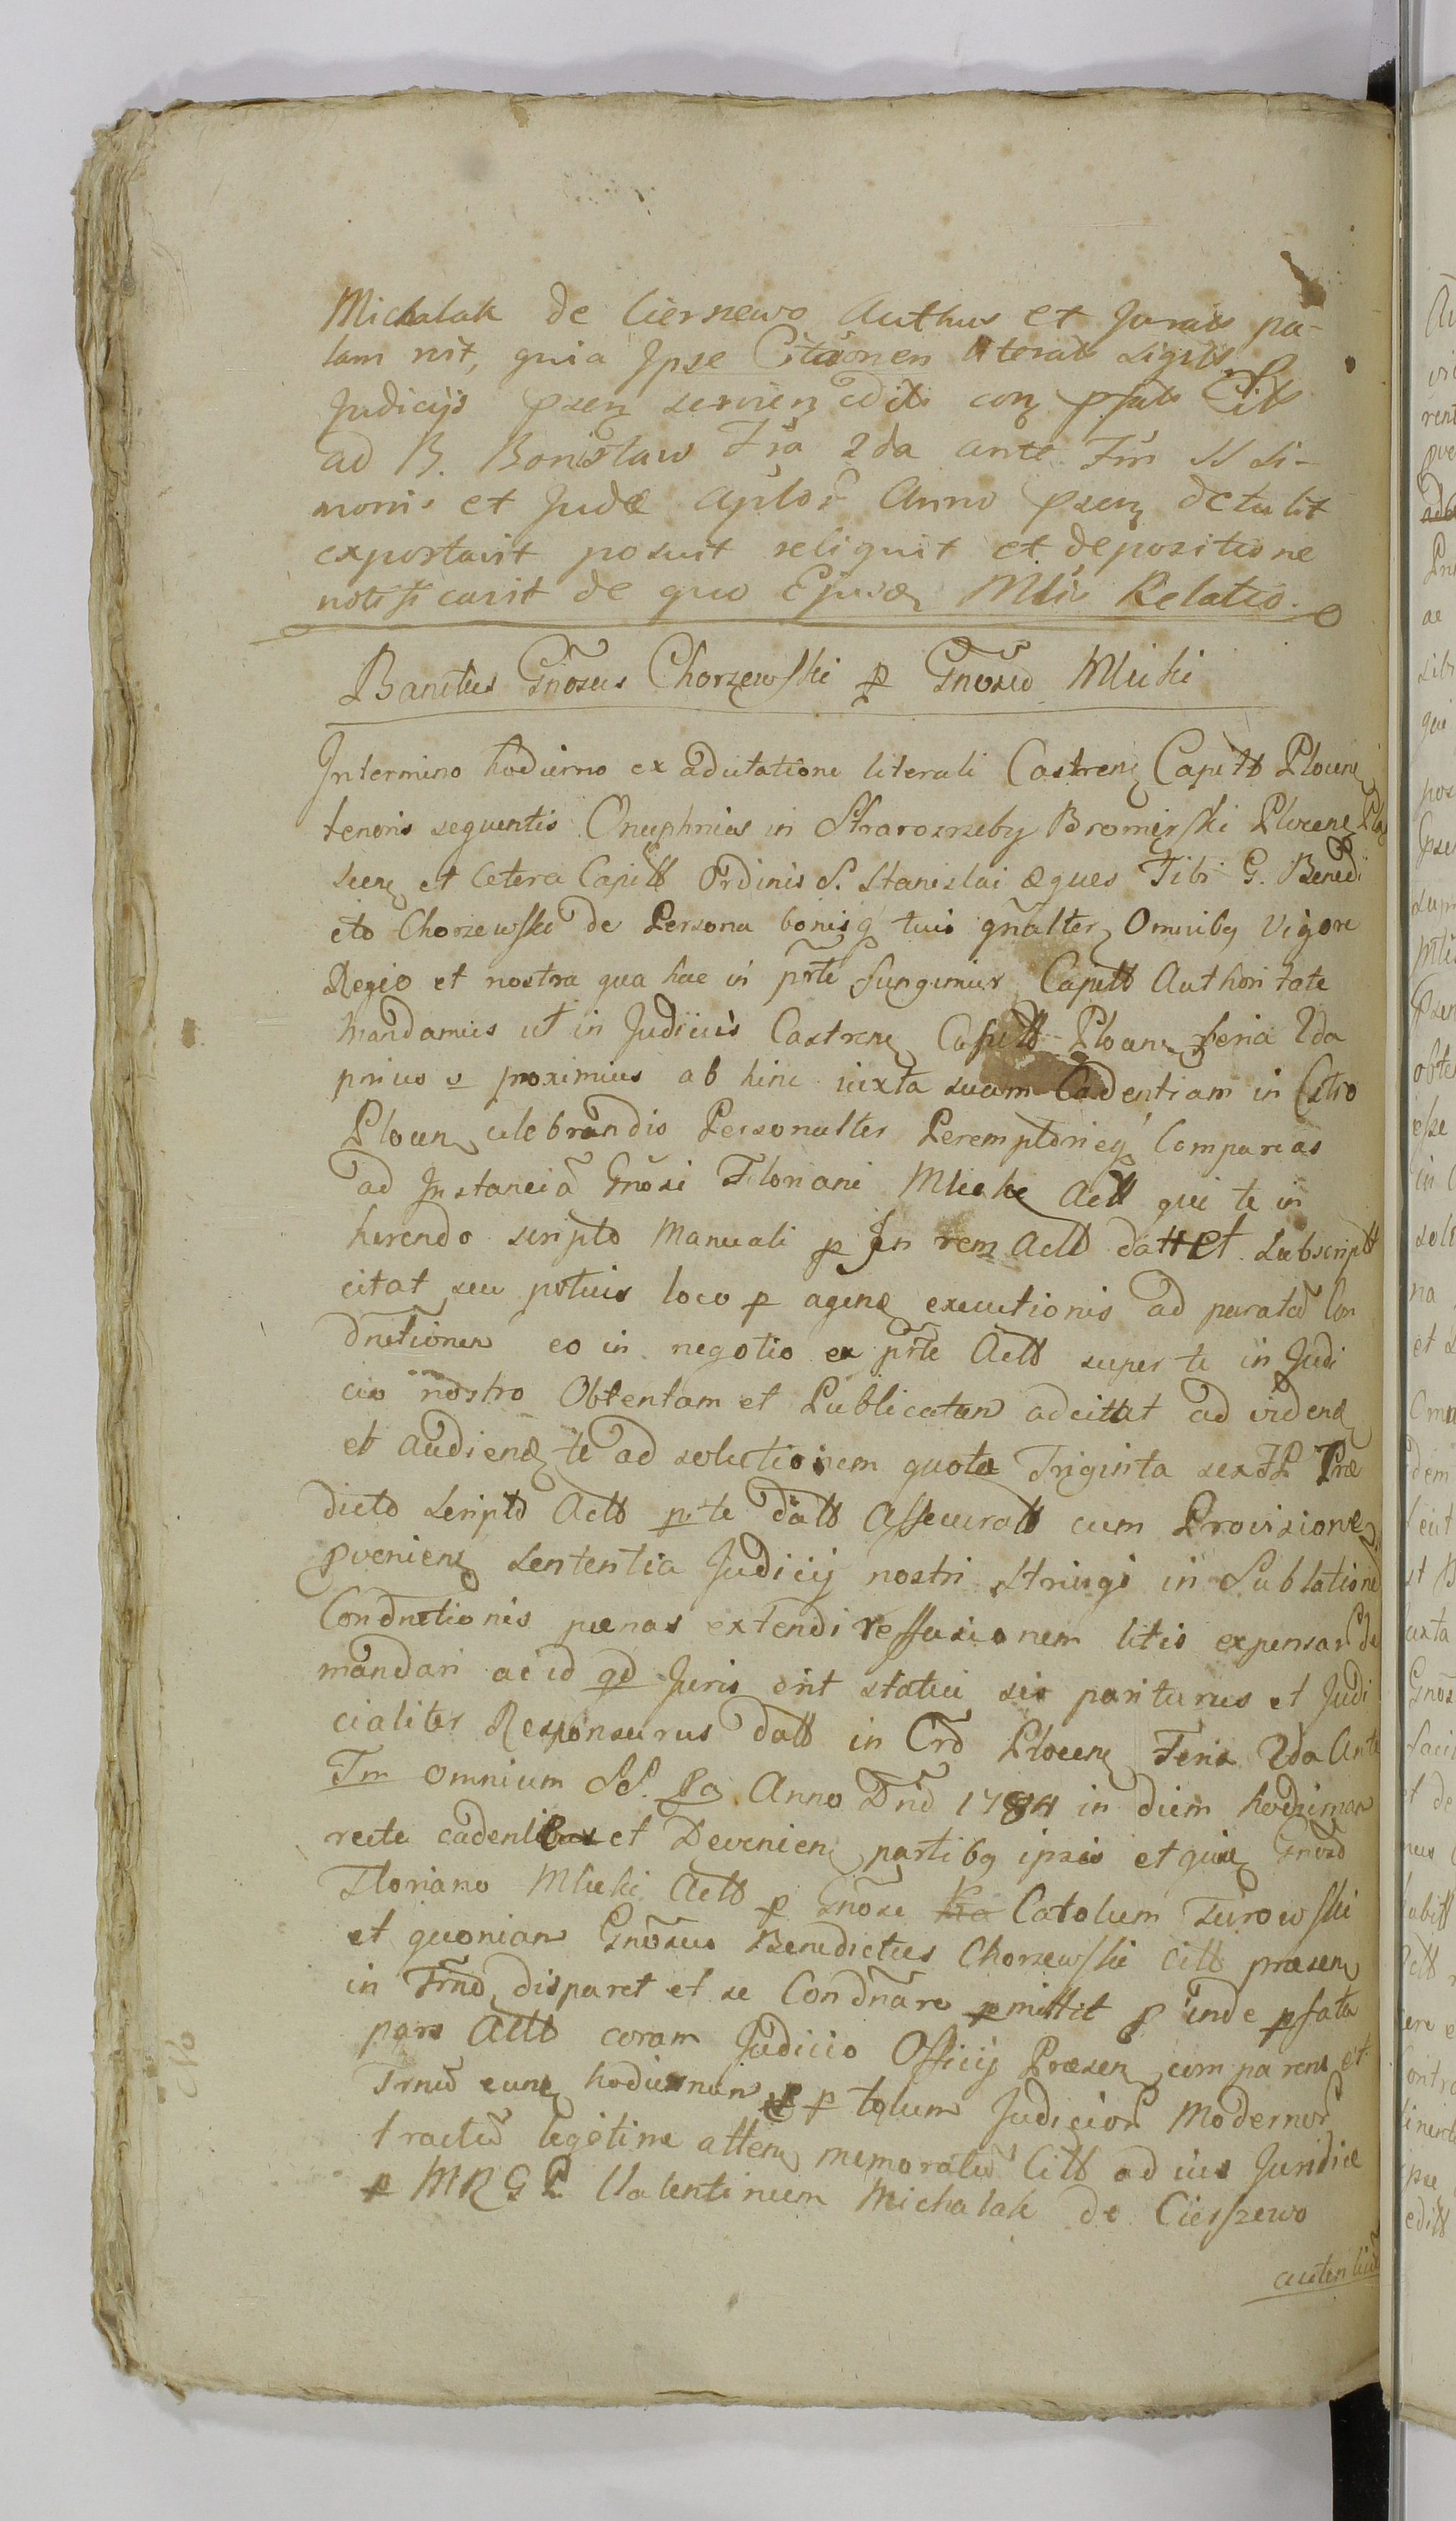 Michalak de Cierszewo Authus et Jurats pa-
lam rit, quia Ipse Citãonen literals sigills
Judicijs psenz servienz edits conz psats Cits
ad B. Bonisław Fria 2da ante Fm SS Si-
monis et Judæ Aplor Anno psenz detulit
exportavit posuit reliquit et depositione
notificavit de quo Ejusdz Mlis Relatio.
Banitus Gñosus Chorzewski p Gñosũ Mlicki
In termino hodierno ex adcitatione literali Castrenz Capitt Plocenz
tenoris sequentis Onuphrius in Strarozreby Bromirski Plocenz
et Cetera Capitt Ordinis S. Stanislai æques Tibi G. Benedi
cto Chorzewski de Persona bonisq tuis gñalter Omnibq Vigore
Regio et nostra qua hac in prte fungimur Capitt Authoritate
Mandamus ut in Judiciis Castrenz Capitt Plocenz feria 2da
prius s proximius ab hinc iuxta suam Cadentiam in Cstro
Plocen celebrandis Personalter Peremptorieq Compareas
ad Instanciã Gñosi Floriani Mlicki Actt qui te in
herendo scripto Manuali p In rem Actt datt et Subscriptt
citat seu potuis loco p agenz executionis ad paratã Con
dnationen eo in negotio ex prte Actt super te in Judi
cio nostro Obtentam et Publicatam adcitat ad videnz
et audienz te ad solutionem quota Triginta sex FP Præ
dicto Scripto Actt p te datt Assecuratt cum Provisionez
pvenienz Sententia Judicij nostri Stringi in Sublatione
Condnationis pœnas extendi reffusionem litis expensar de
mandari ac id qd Juris erit statui sis pariturus et Judi
cialiter Responsurus datt in Crõ Plocenz Feria 2da Ante
Fm Omnium SS. Pa Anno Dnĩ 1784 in diem hodiernam
recte cadenti et Devenienz partibq ipsis et quidz Gnoso
Floriano Mlicki Actt p Gñosũ Carolum Turowski
et quonian Gñosus Benedictus Chorzewski Citt præsenz
in Trño disparet et se Condnare pmittit p inde psata
pars Actt coram Judicio Officij Præsenz comparens et
Trnũ eunz hodiernun p totum Judicior Modernor
tractũ legitime attenz memoratũ Citt ad ius Juridice
p MRGP Valentinum Michalak de Cierszewo
autenticũ